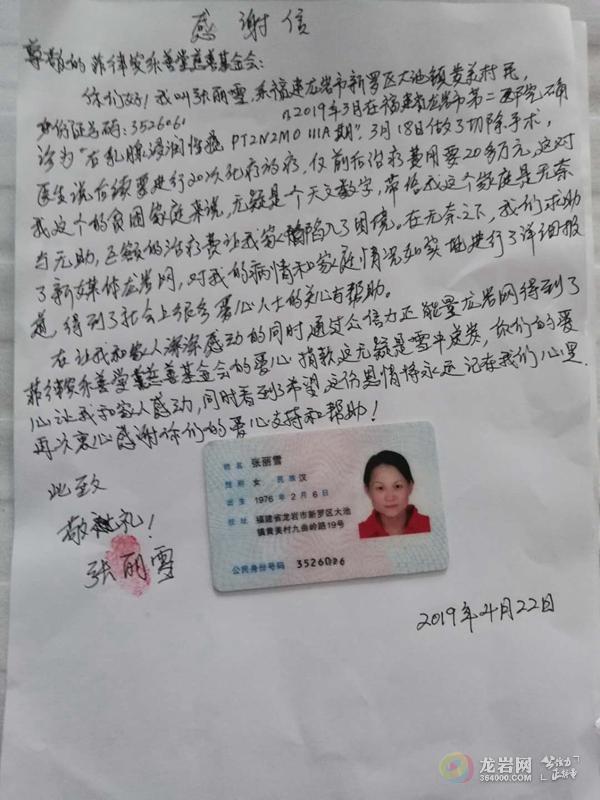 感谢信
尊敬的菲律宾乐善堂慈善基金会：
你们好！我叫张丽雪，系福建龙岩市新罗区大池镇黄美村民，
身份证号码：352606
2019年3月在福建省龙岩市第二医院确
诊为“右乳腺浸润性癌 PT2N2M0 IIIA期”。3月18日做了切除手术，
医生说后续要进行20次化疗放疗，仅前后治疗费用要20多万元，这对
我这个的贫困家庭来说，无疑是个天文数字，带给我这个家庭是无奈
与无助，巨额的治疗费让我家陷入了困境。在无奈之下，我们求助
了新媒体龙岩网，对我的病情和家庭情况如实地进行了详细报
道，得到了社会上很多爱心人士的关心与帮助。
在让我和家人深深感动的同时通过公信力正能量龙岩网得到了
菲律宾乐善堂慈善基金会的爱心捐款这无疑是雪中送炭，你们的爱
心让我和家人感动，同时看到了希望这份恩情将永远记在我们心里.
再次衷心感谢你们的爱心支持和帮助！
此致
敬礼！
张丽雪
2019年4月22日
姓名 张丽雪
性别 女 民族 汉
出生 1976 年 2 月 6 日
住址 福建省龙岩市新罗区大池
镇黄美村九曲岭路19号
公民身份号码 3526026
龙岩网
364000.com
公信力
正能量